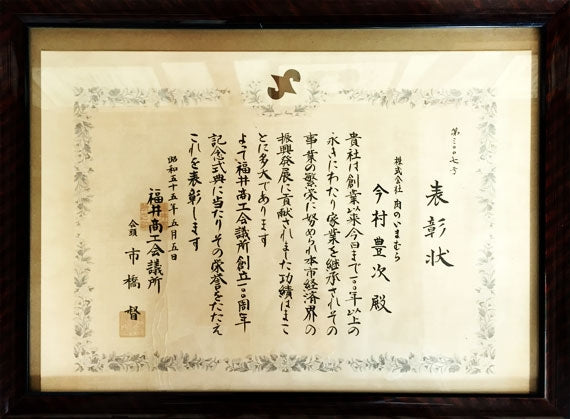 第三〇〇七号
表彰状
株式会社 肉のいまむら
今村豊次殿
貴社は創業以来今日まで一〇〇年以上の
永きにわたり家業を継承されその
事業の繁栄に努められ本市経済界の
振興発展に貢献されました功績はまこ
とに多大であります
よって福井商工会議所創立一〇〇周年
記念式典に当たりその栄誉をたたえ
これを表彰します
昭和五十五年五月五日
福井商工会議所
会頭 市橋督